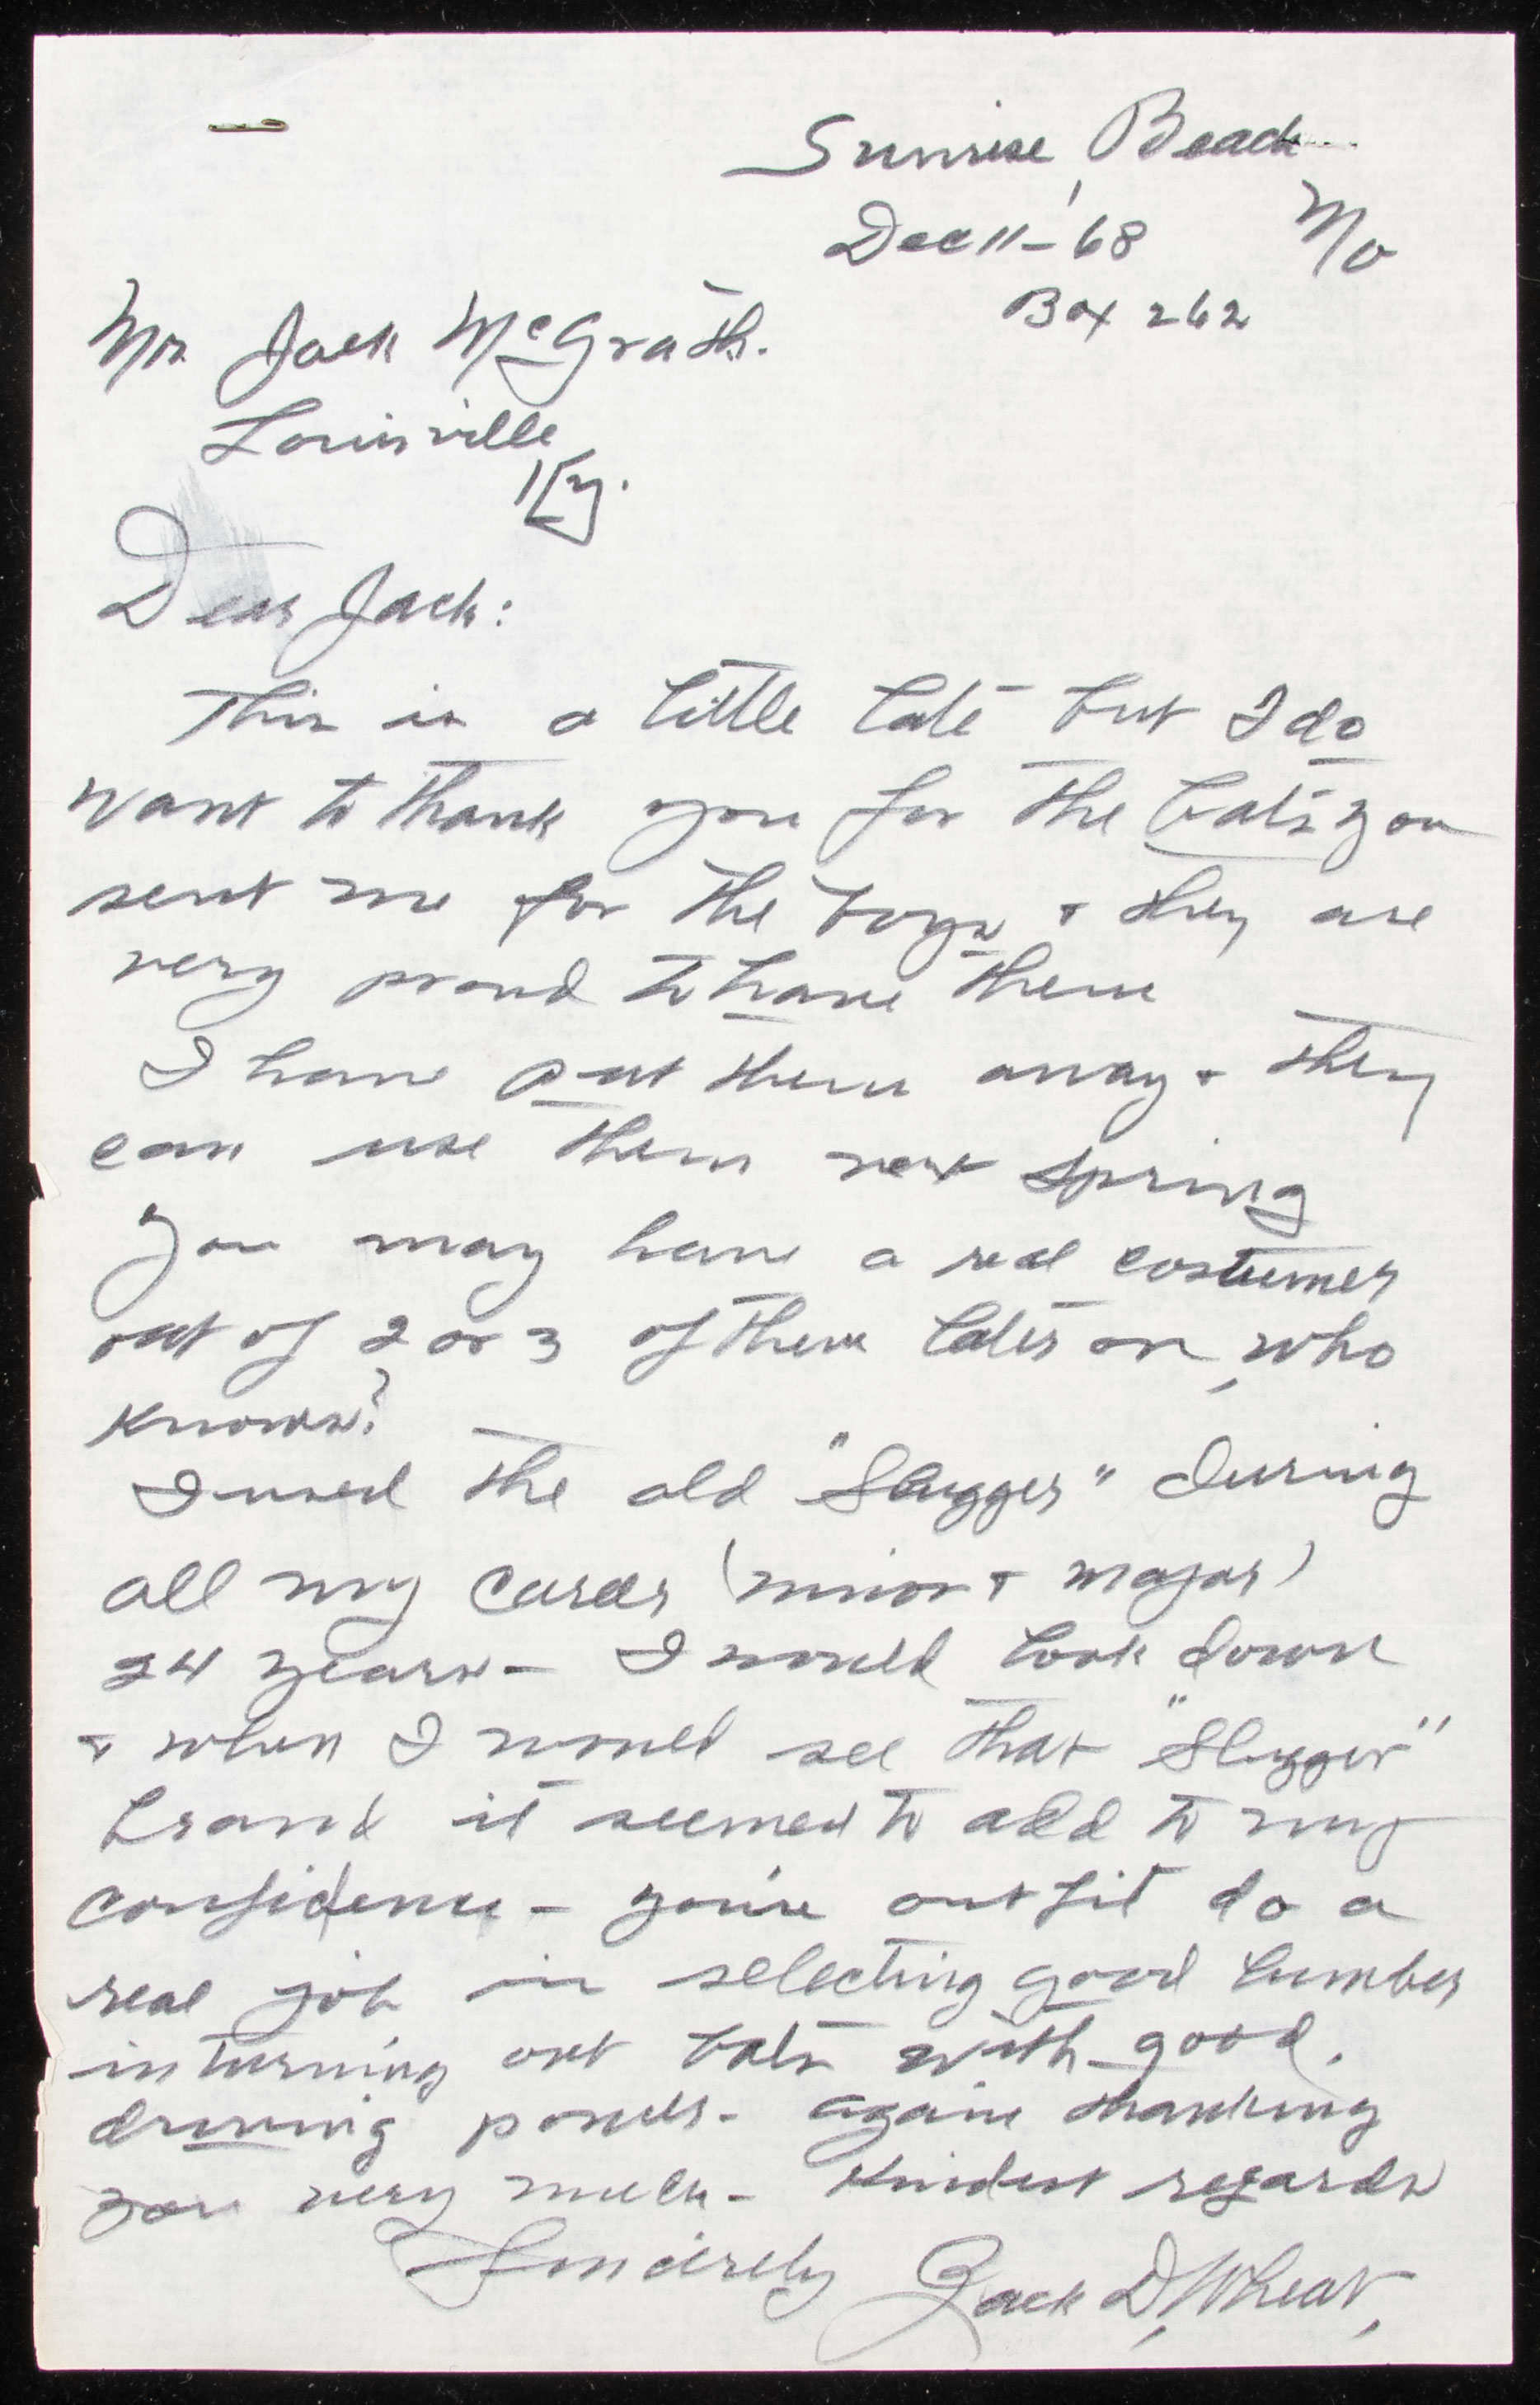 Sunrise Beach,
Mo
Dec 11-68
Box 262
Mr Jack McGrath.
Louisville
Ky.
Dear Jack:
This is a little late but I do
want to thank you for the bats you
sent me for the boys & they are
very proud to have them
I have put them away & they
can use them next spring
You may have a real costumer
out of 2 or 3 of them later on, who
knows?
I used the old "Slugger" during
all my career (minor & major)
24 years - I would look down
& when I would see that "Slugger"
brand it seemed to add to my
confidence - you're outfit do a
real job in selecting good lumber
in turning out bats with good
driving power - again thanking
you very much - Kindest regards
Sincerely Zack D, Wheat,